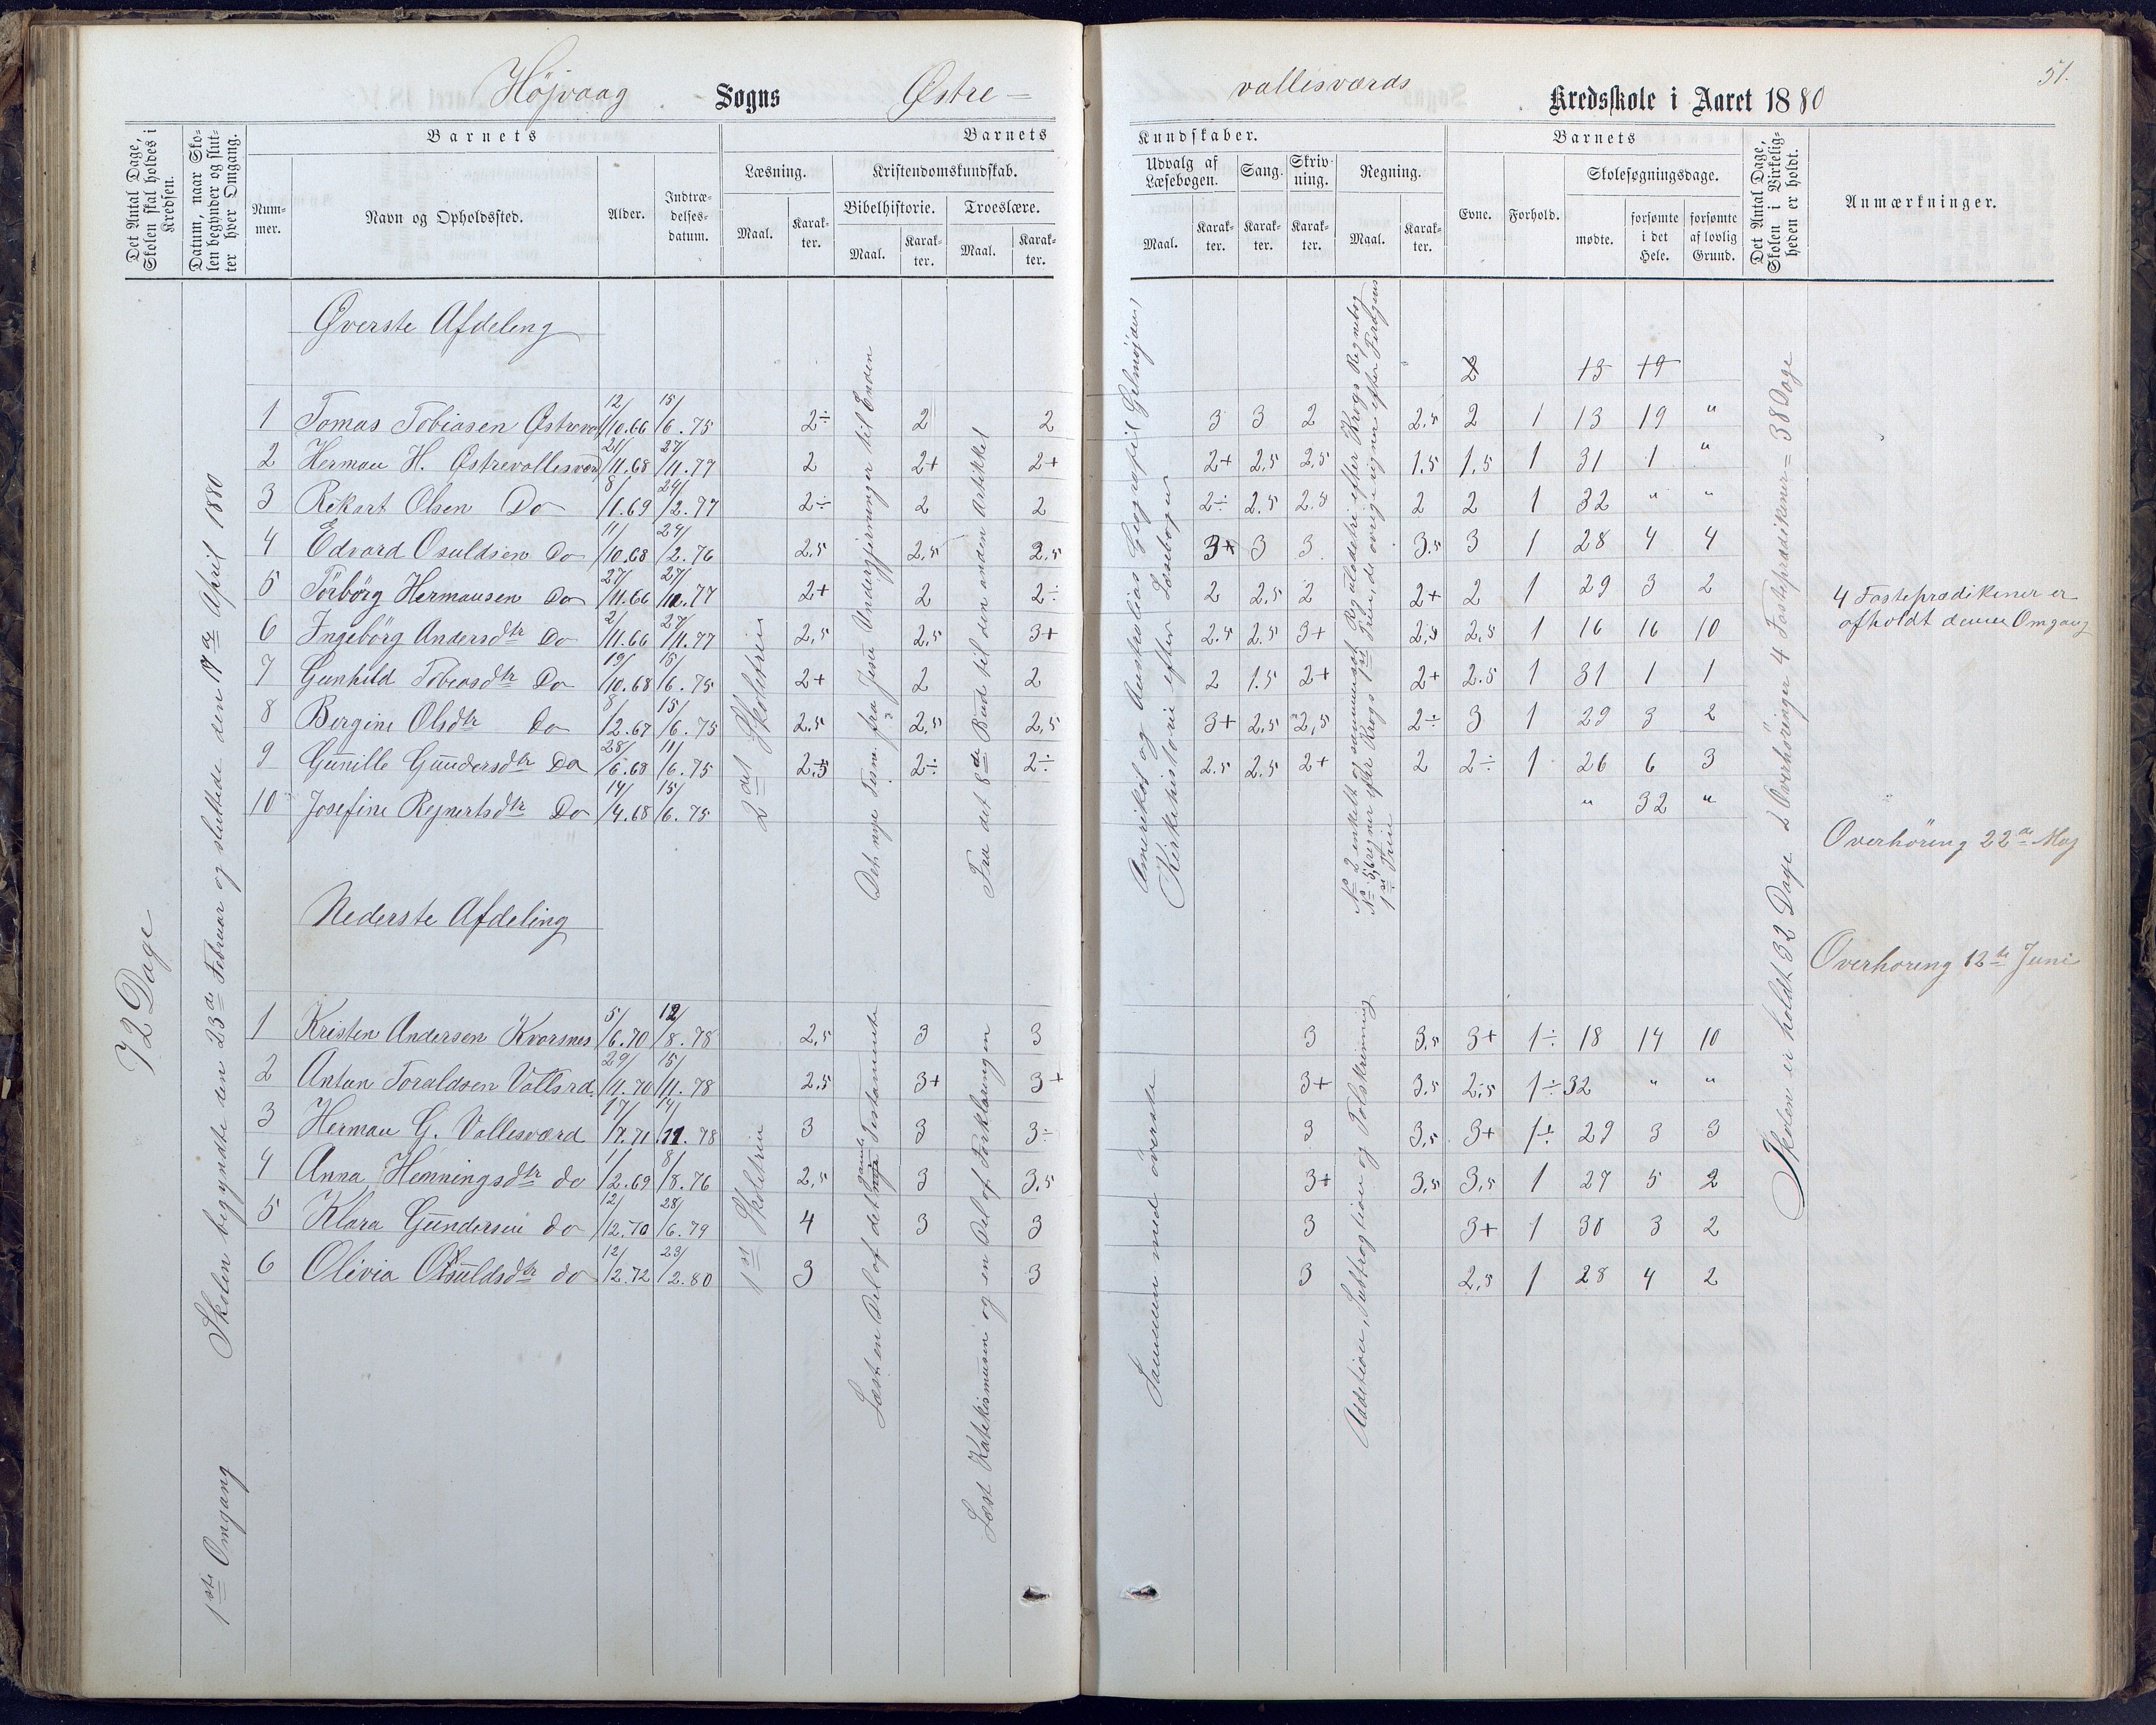 51.
Højvaag Sogns Østre- vallisværds Kredsskole i Aaret 1880
Det Antal Dage, Skolen skal holdes i Kredsen.
Datum, naar Skolen begynder og slutter hver Omgang.
Barnets
Nummer.
Navn og Opholdssted.
Alder.
Indtrædelsesdatum.
Barnets
Læsning.
Maal.
Karakter.
Kristendomskundskab.
Bibelhistorie.
Maal.
Karakter.
Troeslære.
Maal.
Karakter.
Kundskaber.
Udvalg af Læsebogen.
Maal.
Karakter.
Sang.
Karakter.
Skrivning.
Karakter.
Regning.
Maal.
Karakter.
Barnets
Evne.
Forhold.
Skolesøgningsdage.
mødte.
forsømte i det Hele.
forsømte af lovlig Grund.
Det Antal Dage, Skolen i Virkeligheden er holdt.
Anmærkninger.
72 Dage
1ste Omgang Skolen begyndte den 23de Februar og sluttede den 17de April 1880
Øverste Afdeling
2 13 19
1 Tomas Tobiasen Østreval 12/10.66 15/6.75 2÷ 2 2 3 3 2 2.5 2 1 13 19 "
2 Herman H. Østrevallesvær 21/11.68 27/11.77 2 2+ 2+ 2+ 2,5 2,5 1.5 1,5 1 31 1 "
3 Rikart Olsen Do 8/1.69 24/2.77 2÷ 2 2 2÷ 2.5 2.5 2 2 1 32 " "
4 Edvard Osuldsen Do 11/10.68 24/2.76 2,5 2,5 2,5 3+ 3 3 3.5 3 1 28 4 4
5 Törbörg Hermansen Do 27/11.66 27/11.77 2+ 2 2÷ 2 2,5 2 2+ 2 1 29 3 2
6 Ingebörg Andersdtr Do 2/11.66 27/11.77 2,5 2,5 3+ 2.5 2.5 3+ 2,5 2,5 1 16 16 10
7 Gunhild Tobiasdtr Do 19/10.68 15/6.75 2+ 2 2 2 1.5 2+ 2+ 2.5 1 31 1 1
8 Bergine Olsdtr Do 8/12.67 15/6.75 2.5 2,5 2,5 3+ 2,5 2,5 2÷ 3 1 29 3 2
9 Gunille Gundersdtr Do 28/6.68 11/6.75 2,5 2÷ 2÷ 2.5 2.5 2+ 2 2÷ 1 26 6 3
10 Josefine Rejnertsdtr Do 14/4.68 15/6.75 " 32 "
2det Skoletrin
Det nye Tesm. fra Jesu Undergjerninger til Enden
Fra det 8de Bud til den anden Artikkel
Amerikas og Australias Geografi
Kirkehistorie efter Læsebogen
4 Fasteprædikener er
afholdt denne Omgang
Overhöring 22de Maj
Overhøring 12te Juni
Skolen er holdt 32 Dage 2 Overhöringer 4 Fasteprædikener = 38 Dage
Nederste Afdeling
1 Kristen Andersen Kvarsnes 5/6.70 12/8.78 2,5 3 3 3 3,5 3+ 1÷ 18 14 10
2 Anton Toraldsen Vallsrd. 29/11.70 15/11.78 2.5 3+ 3+ 3+ 3,5 2,5 1÷ 32 " "
3 Herman G. Vallesværd 17/7.71 14/11.78 3 3 3÷ 3 3,5 3+ 1÷ 29 3 3
4 Anna Hemningsdtr do 1/2.69 8/8.76 2,5 3 3,5 3+ 3,5 3,5 1 27 5 2
5 Klara Gundersen do 12/12.70 28/6.79 4 3 3 3 3+ 1 30 3 2
6 Olivia Osuldsdtr do 12/2.72 23/2.80 3 3 3 2,5 1 28 4 2
1ste Skoletrin
Læst en Del af det gamle Testamente
Læst Katekismusen og en Del af Forklaringen
Sammen med øverste
Addition, Subtragtion og Talskrivning